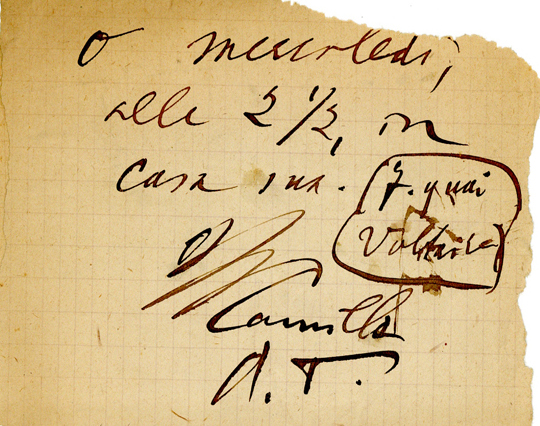 o mercoledì,
alle 2 1/2, in
casa sua. 7. quai
Voltaire
Camillo
A. T.